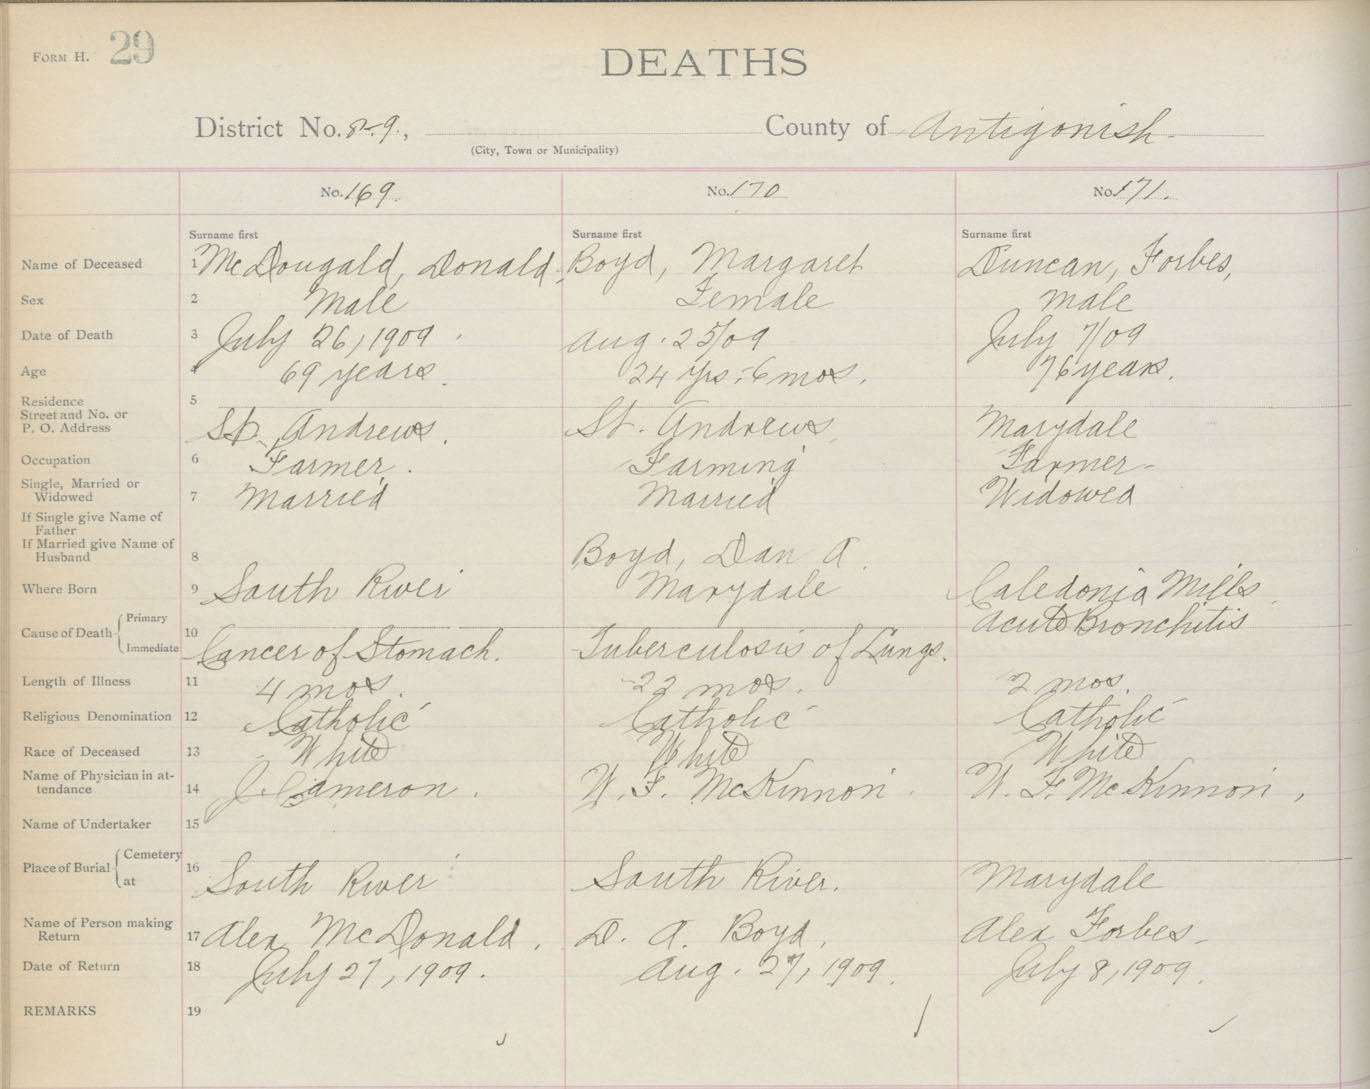 FORM H. 29
DEATHS
District No. 8-9, County of Antigonish
(City, Town or Municipality)
No. 169. No. 170 No. 171.
Surname first Surname first Surname first
Name of Deceased 1 McDougald, Donald, Boyd, Margaret Duncan, Forbes,
Sex 2 Male Female Male
Date of Death 3 July 26, 1909. Aug. 25/09 July 7/09
Age 4 69 years. 24 yrs. 6 mos. 76 years.
Residence 5
Street and No. or
P. O. Address St. Andrews. St. Andrews Marydale
Occupation 6 Farmer. Farming Farmer-
Single, Married or
Widowed 7 Married Married Widowed
If Single give Name of
Father
If Married give Name of
Husband 8 Boyd, Dan A.
Where Born 9 South River Marydale Caledonia Mills
Cause of Death { Primary Acute Bronchitis
Immediate 10 Cancer of Stomach. Tuberculosis of Lungs.
Length of Illness 11 4 mos. 22 mos. 2 mos.
Religious Denomination 12 Catholic Catholic Catholic
Race of Deceased 13 White White White
Name of Physician in at-
tendance 14 J. Cameron. W. F. McKinnon. W. F. McKinnon,
Name of Undertaker 15
Place of Burial { Cemetery
at 16 South River South River. Marydale
Name of Person making
Return 17 Alex McDonald. D. A. Boyd, Alex Forbes-
Date of Return 18 July 27, 1909. Aug. 27, 1909. July 8, 1909.
REMARKS 19